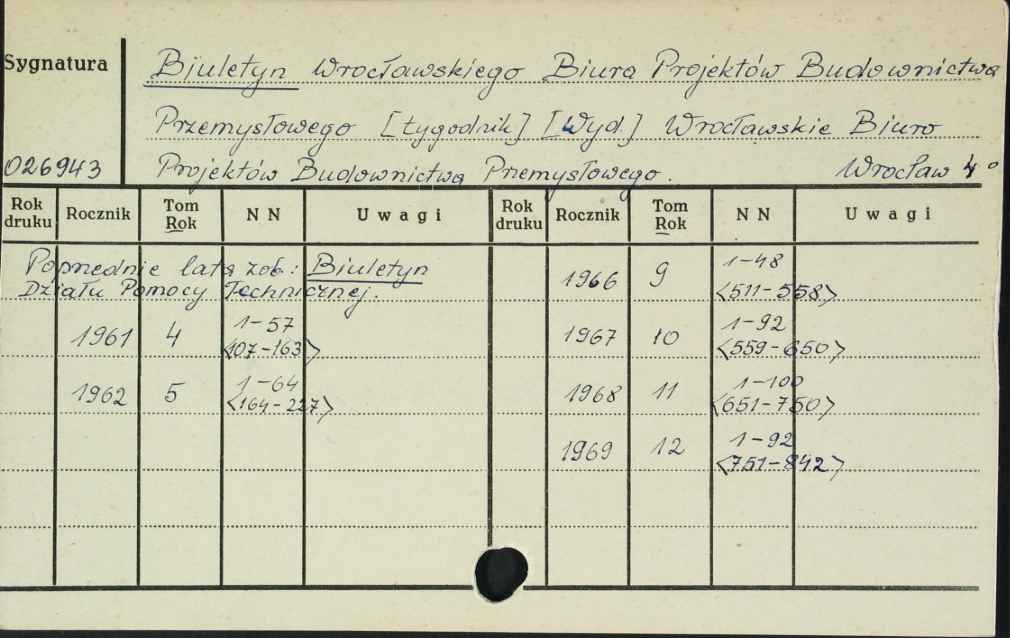 Sygnatura
Biuletyn Wrocławskiego Biura Projektów Budownictwa
Przemysłowego [tygodnik] [Wyd.] Wrocławskie Biuro
026943 Projektów Budownictwa Przemysłowego. Wrocław 4°
Rok druku Rocznik Tom Rok NN Uwagi Rok druku Rocznik Tom Rok NN Uwagi
Poprzednie lata zob.: Biuletyn
Działu Pomocy Technicznej.
1961 4 1-57
<107-163>
1962 5 1-64
<164-227>
1966 9 1-48
<511-558>
1967 10 1-92
<559-650>
1968 11 1-100
<651-750>
1969 12 1-92
<751-842>